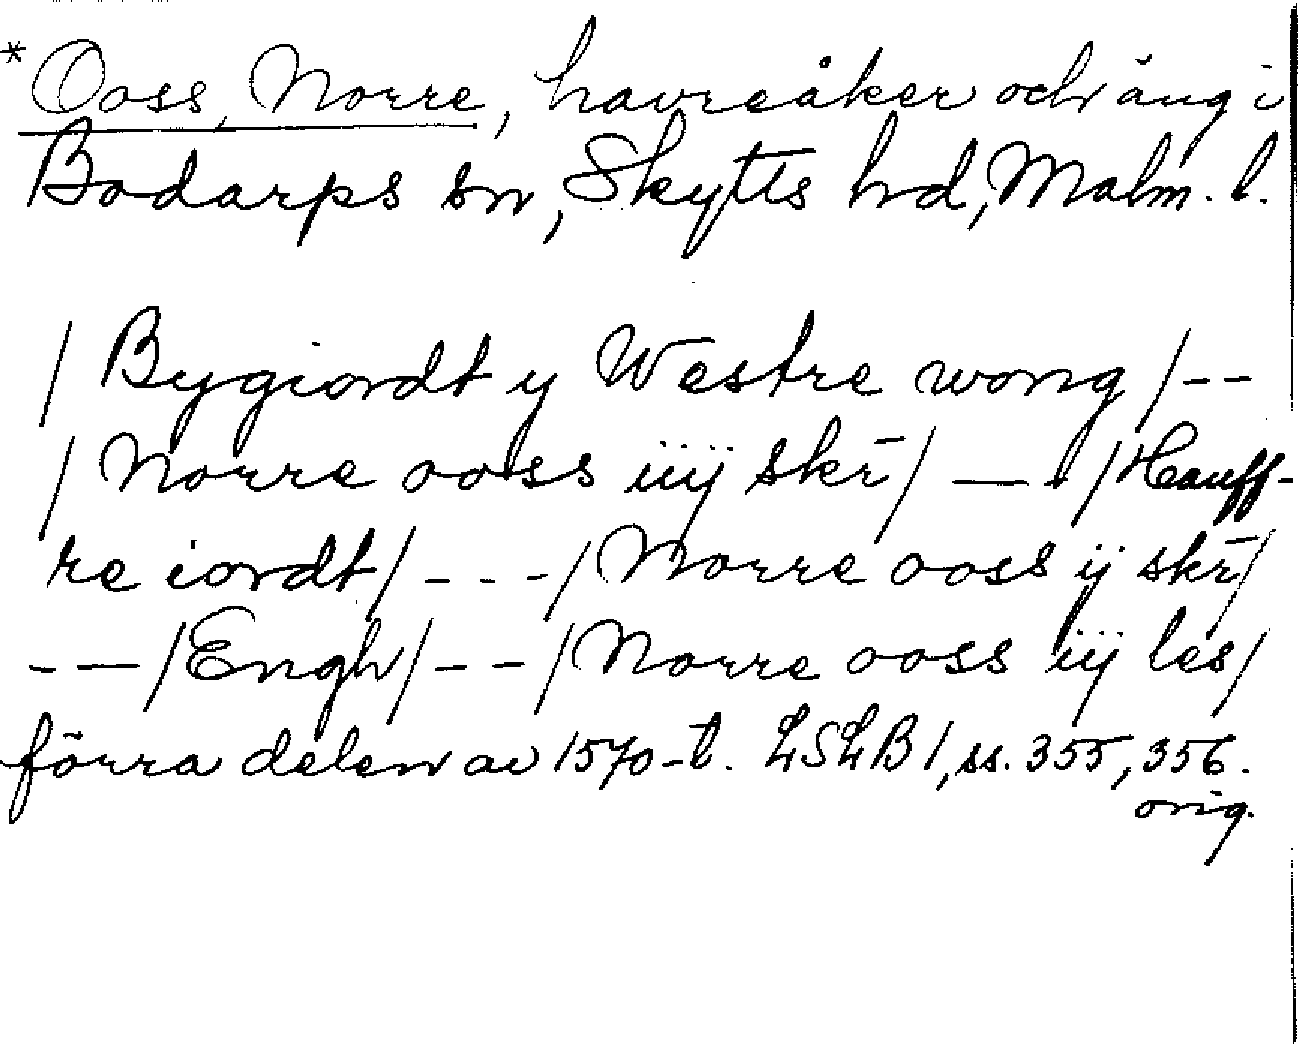 * Ooss, Norre, havreåker och äng i
Bodarps sn, Skytts hd, Malm. l.
/ Bygiordt y Westre wong /--
/ Norre ooss iiij skr̄ / — - / Hauff-
re iordt / - - - / Norre ooss ij skr̄ /
- — / Engh / - - / Norre ooss iij les /
förra delen av 1570-t. LSLB 1, ss. 355, 356.
orig.